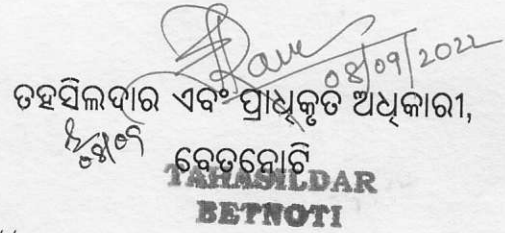 08/09/2022
ତହସିଲଦାର ଏବଂ ପ୍ରାଧିକୃତ ଅଧିକାରୀ,
ବେତନୋଟି
TAHASILDAR
BETNOTI